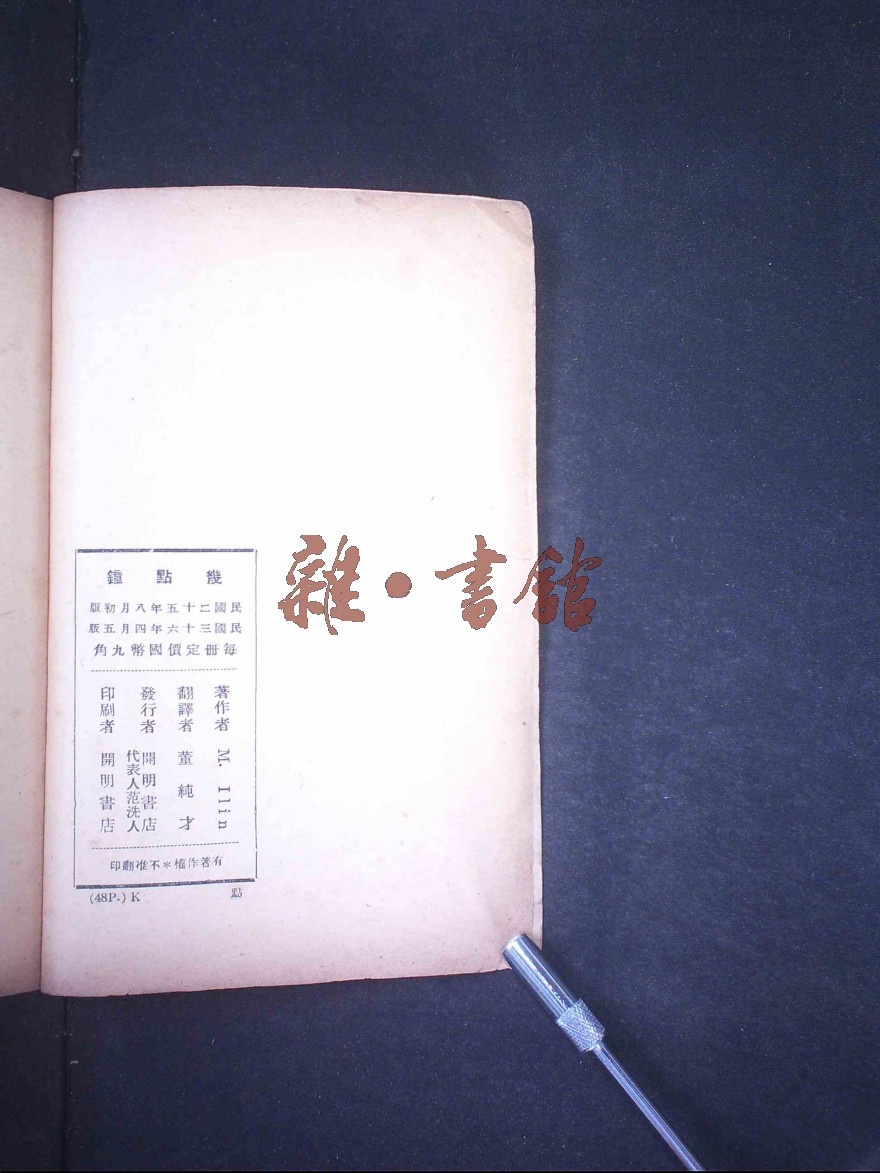 幾點鐘
民國二十五年八月初版
民國三十六年四月五版
每冊定價國幣九角
著作者 M. Ilin
翻譯者 董純才
發行者 開明書店
代表人范洗人
印刷者 開明書店
有著作權*不准翻印
(48P.) K 點
雜·書館